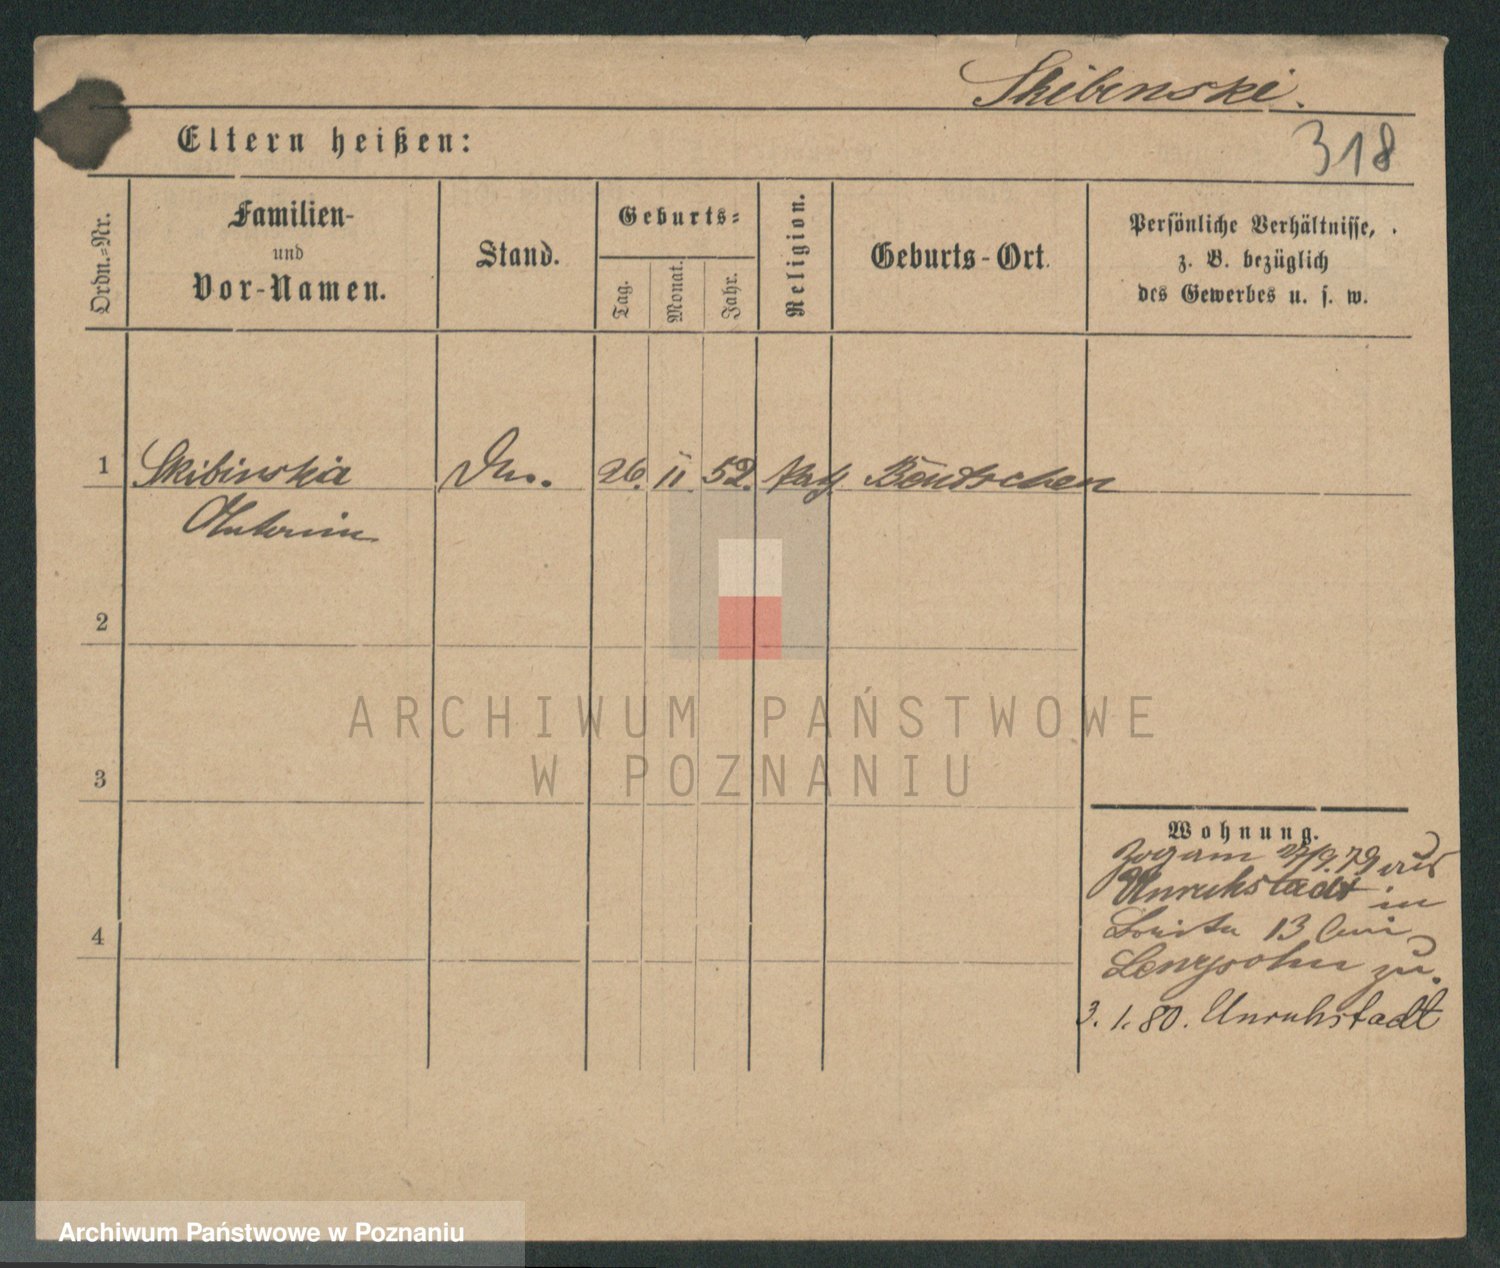 Skibinski.
318
Eltern heißen:
Ordn.-Nr.
Familien-
und
Vor-Namen.
Stand.
Geburts-
Tag.
Monat.
Jahr.
Religion.
Geburts-Ort.
Persönliche Verhältnisse,
z. B. bezüglich
des Gewerbes u. s. w.
1 Skibinska 26. II. 52. Kath. Bentschen
Antonin
2
3
4
Wohnung.
Zog am 27/9. 79 aus
Unruhstadt in
13 bei
zu.
3. 1. 80. Unruhstadt
ARCHIWUM PAŃSTWOWE
W POZNANIU
Archiwum Państwowe w Poznaniu